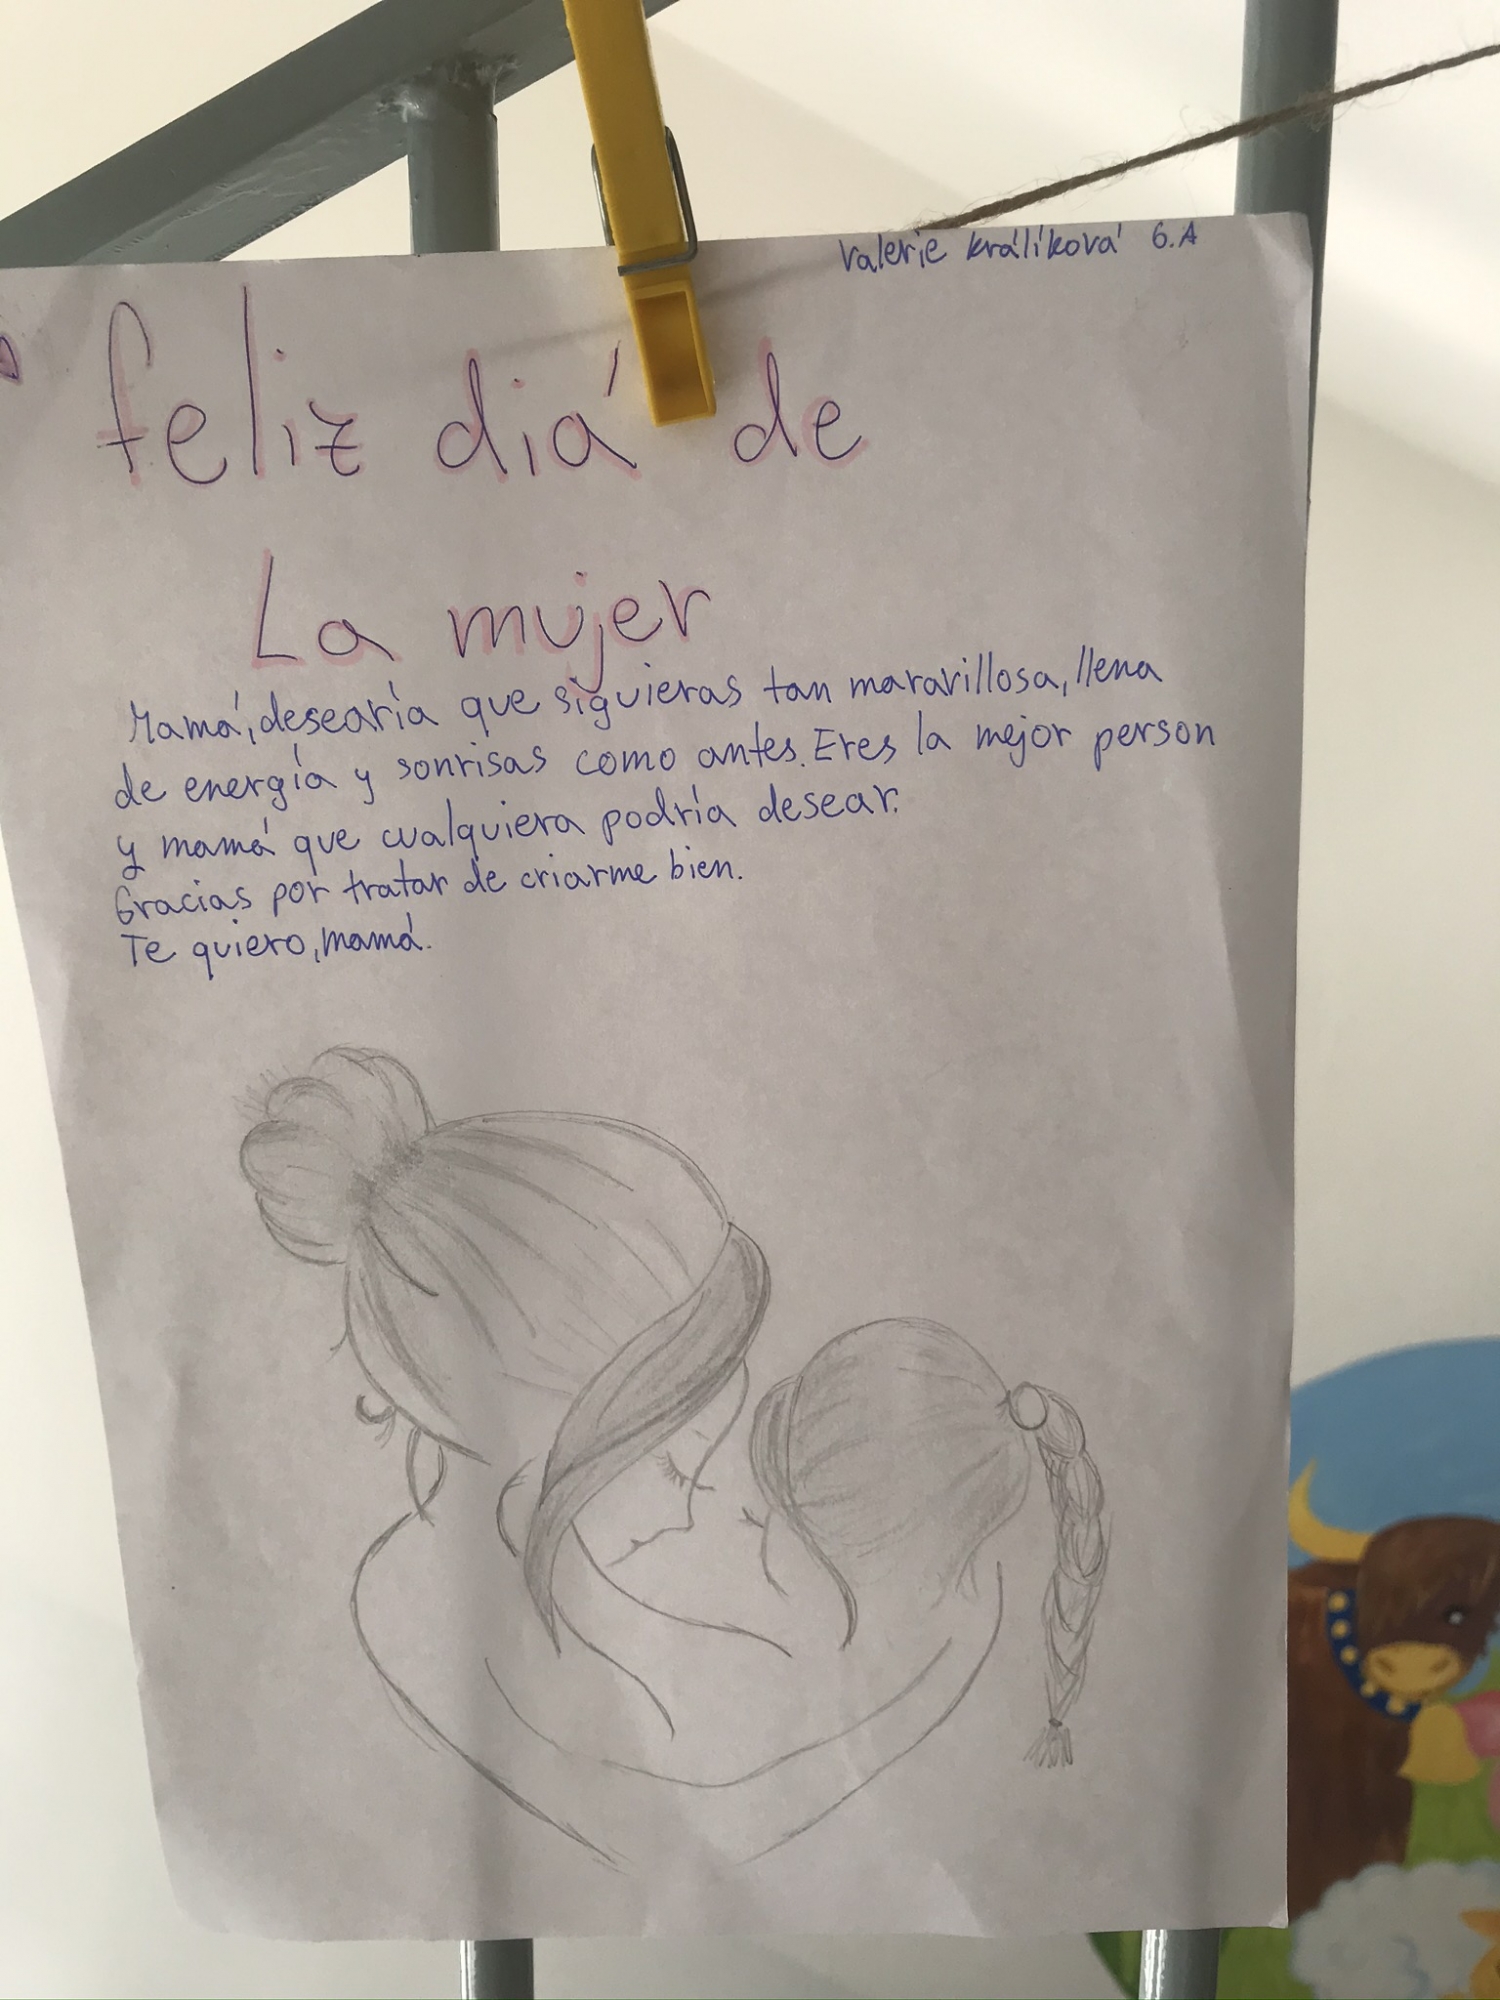 Valerie Králíková 6.A
feliz diá de
La mujer
Mamá, desearía que siguieras tan maravillosa, llena
de energía y sonrisas como antes. Eres la mejor person
y mamá que cualquiera podría desear.
Gracias por tratar de criarme bien.
Te quiero, mamá.